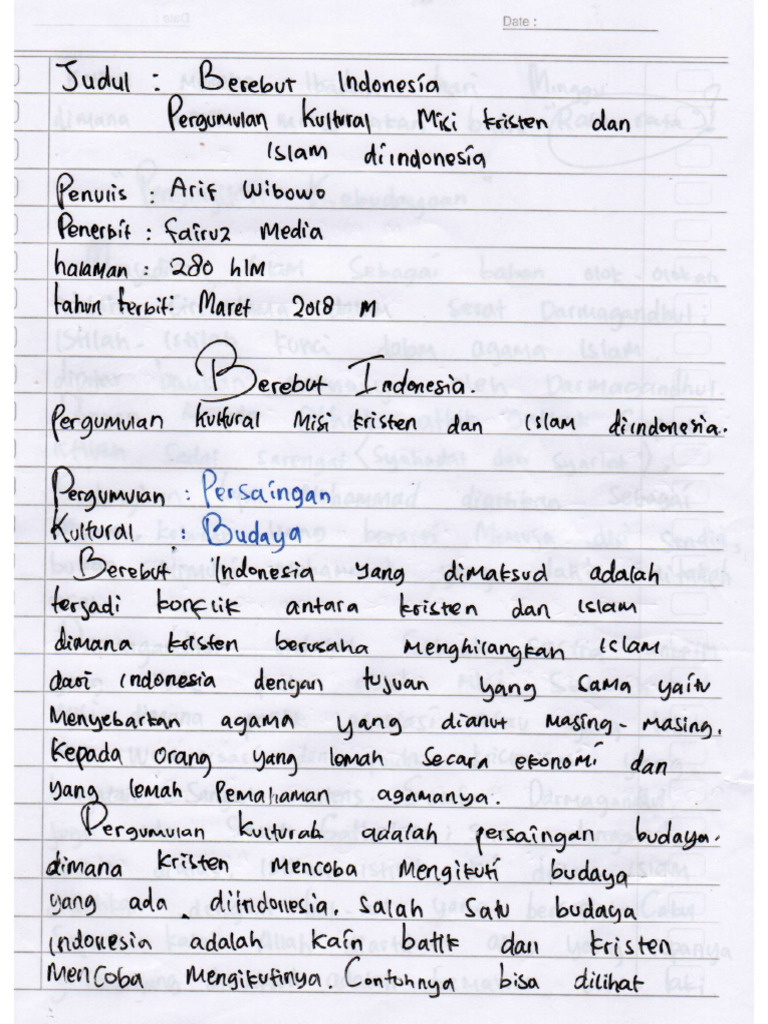 Date :
Judul : Berebut Indonesia
Pergumulan Kultural Misi kristen dan
Islam diindonesia
Penulis : Arif Wibowo
Penerbit : fairuz media
halaman : 280 hlm
tahun terbit : Maret 2018 M
Berebut Indonesia.
Pergumulan kultural Misi kristen dan Islam diindonesia.
Pergumulan : Persaingan
Kultural : Budaya
"Berebut" indonesia yang dimaksud adalah
terjadi konflik antara kristen dan Islam
dimana kristen berusaha menghilangkan islam
dari indonesia dengan tujuan yang sama yaitu
Menyebarkan agama yang dianut masing-masing.
kepada orang yang lemah secara ekonomi dan
yang lemah Pemahaman agamanya.
Pergumulan kulturab adalah persaingan budaya.
dimana kristen Mencoba Mengikuti budaya
yang ada diindonesia. Salah satu budaya
indonesia adalah kain batik dan kristen
Mencoba Mengikutinya. Contuhnya bisa dilihat